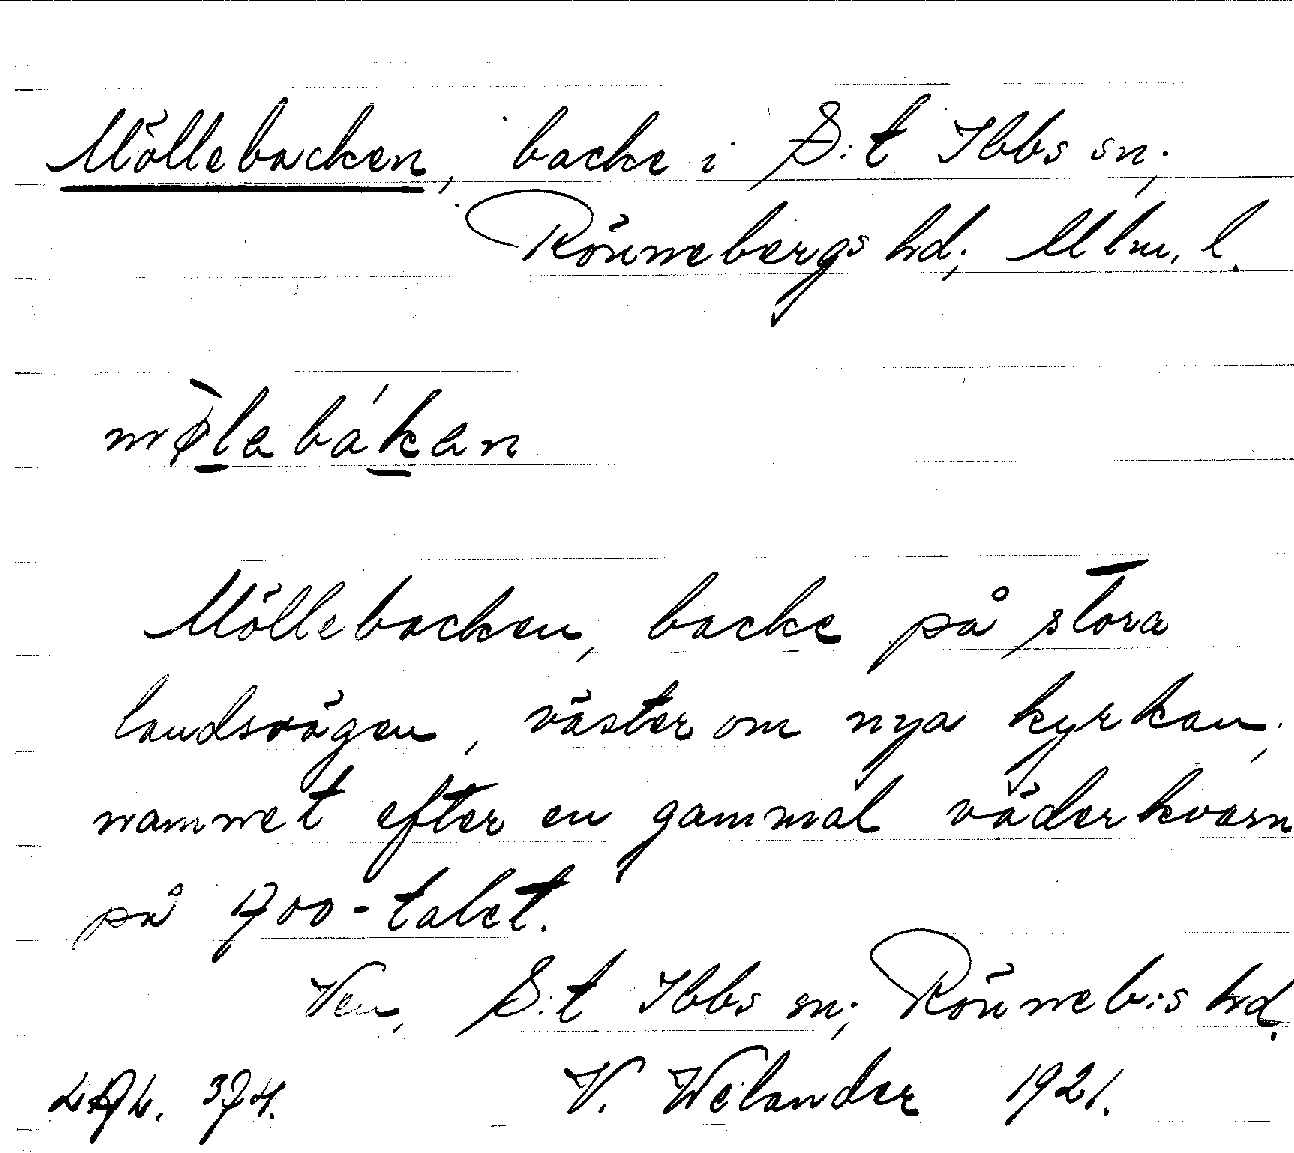 Möllebacken, backe i S:t Ibbs sn;
Rönnebergs hd; Mlm. l.
mø̀lebákan
Möllebacken, backe på stora
landsvägen, väster om nya kyrkan,
namnet efter en gammal väderkvarn
på 1700-talet.
Ven, S:t Ibbs sn; Rönneb:s hd.
374. V. Welander 1921.